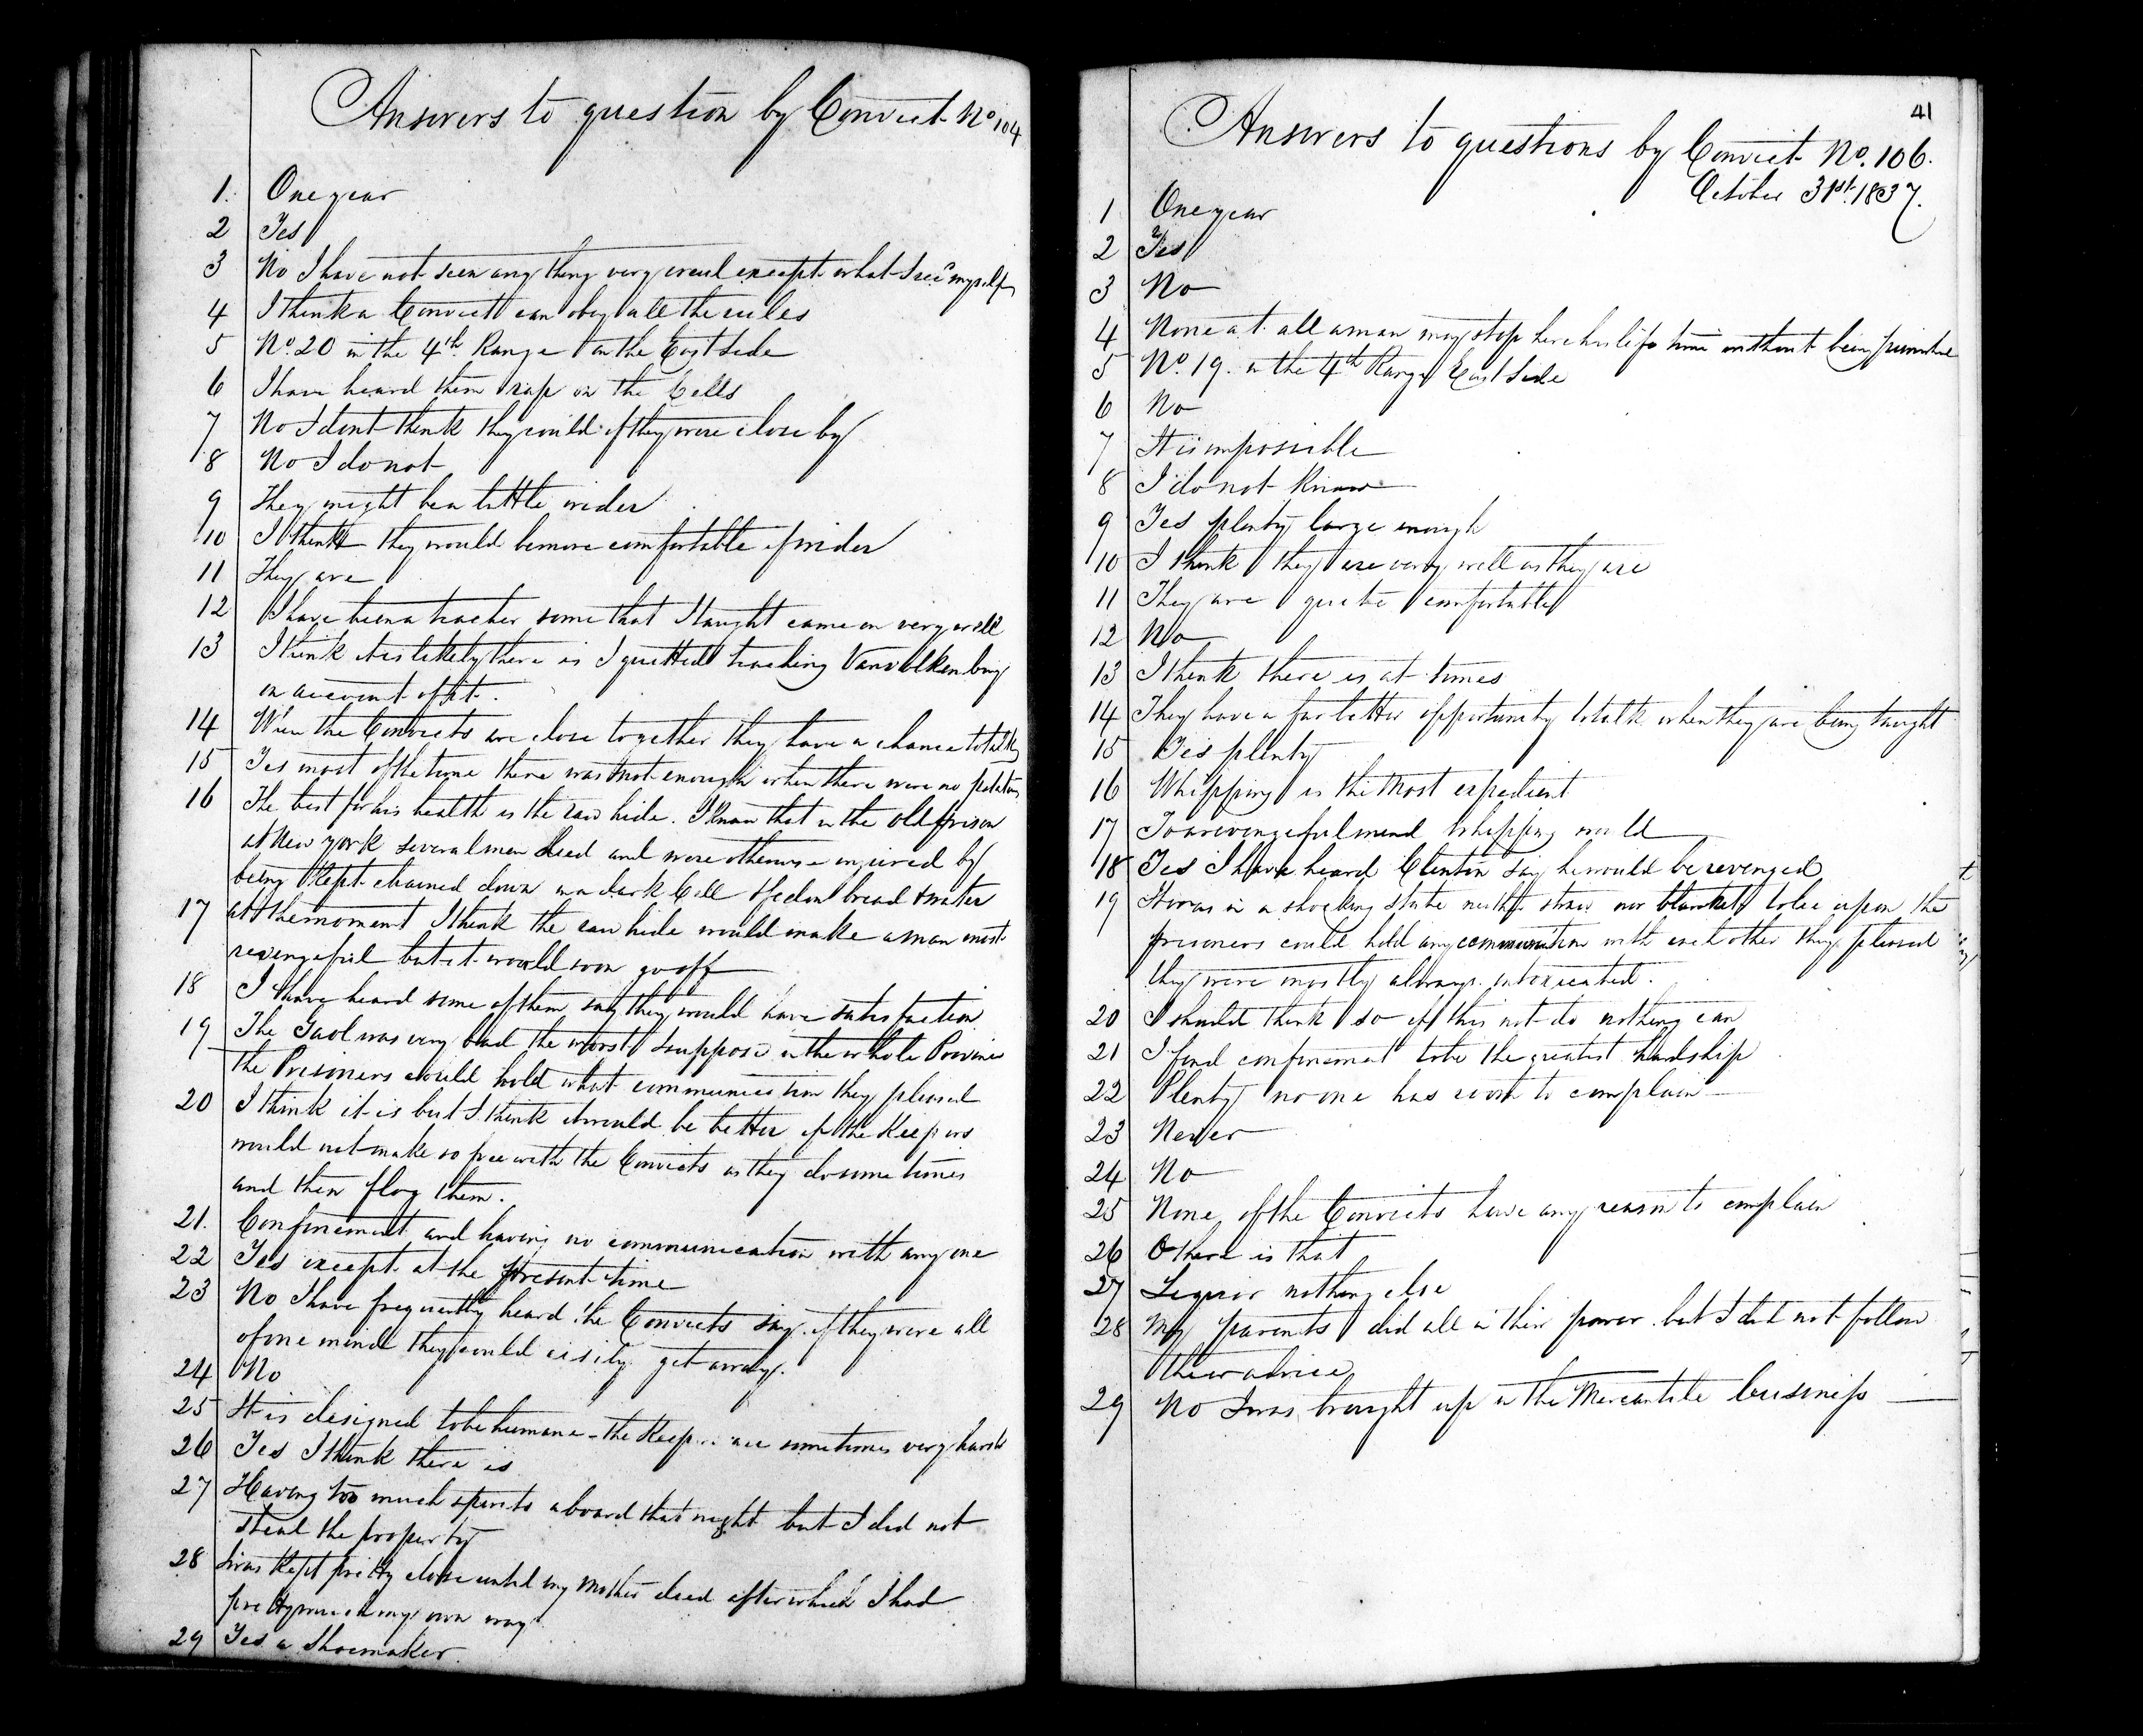 Answers to question by Convict No 104
1. One year
2 Yes
3 No I have not seen any thing very creul except what I rec'd myself
4 I think a Convict can obey all the rules
5 No. 20 in the 4th Range on the East side
6 I have heard them rap on the Cells
7 No I dont think they could if they were close by
8 No I do not
9 They might be a little wider
10 I think they would be more comfortable if wider
11 They are
12 I have been a teacher some that I taught came on very well
13 I think it is likely there is I quitted teaching Vanvolkenburg
on account of it.
14 When the Convicts are close together they have a chance to talk
15 Yes most of the time there was not enough when there were no potatoes
16 The best for his health is the raw hide. I know that in the old prison
at New York several men died and were otherwise injured by
being kept chained down in a dark Cell & fed on bread & water
17 at the moment I think the raw hide would make a man most
revengeful but it would soon go off
18 I have heard some of them say they would have satisfaction
19 The Gaol was very bad the worst I suppose in the whole Province
the Prisoners could hold what communication they pleased
20 I think it is but I think it would be better if the Keepers
would not make so free with the Convicts as they do some times
and then flog them.
21. Confinement and having no communication with any one
22 Yes except at the present time
23 No I have frequently heard the Convicts say if they were all
of one mind they could eisily get away.
24 No
25 It is designed to be humane - the Keepers are sometimes very harsh
26 Yes I think there is
27 Having too much spirits aboard that night but I did not
steal the property
28 I was kept pretty close until my mother died after which I had
pretty much my own way
29 Yes a Shoemaker
41
Answers to questions by Convict No. 106.
October 31st 1837.
1 One year
2 Yes
3 No
4 None at all a man may stop here his life time without being punished
5 No. 19. in the 4th Range East Side
6 No
7 It is impossible
8 I do not know
9 Yes plenty large enough
10 I think they are very well as they are
11 They are quite comfortable
12 No
13 I think there is at times
14 They have a far better opportunity to talk when they are being taught
15 Yes plenty
16 Whipping is the most expedient
17 To a revengeful mind whipping would
18 Yes I have heard Clinton say he would be revenged
19 It was in a shocking state neither straw nor blankets to lie upon the
prisoners could hold any communication with each other they pleased
they were mostly always intoxicated.
20 I should think so if this not do nothing can
21 I find confinement to be the greatest hardship
22 Plenty no one has room to complain
23 Never
24 No
25 None of the Convicts have any reason to complain
26 O there is that
27 Liquior nothing else
28 My parents did all in their power but I did not follow
their advice
29 No I was brought up in the Mercantile business